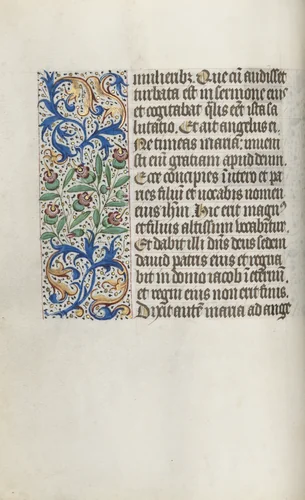 mulieribz. Que cū audisset
turbata est in sermone eius
et cogitabat q̄lis eēt ista sa
lutatio. Et ait angelus ei.
Ne timeas maria: inveni
sti eīm gratiam apud deum.
Ecce concipies ī utero et pa
ries filiū et vocabis nomen
eius ihm̄. Hic erit magn9
et filius altissimi vocabitur.
Et dabit illi dn̄s deus sedem
david patris eius et regna
bit in domo iacob ī eternū.
et regni eius non erit finis.
Dixit autē maria ad ange